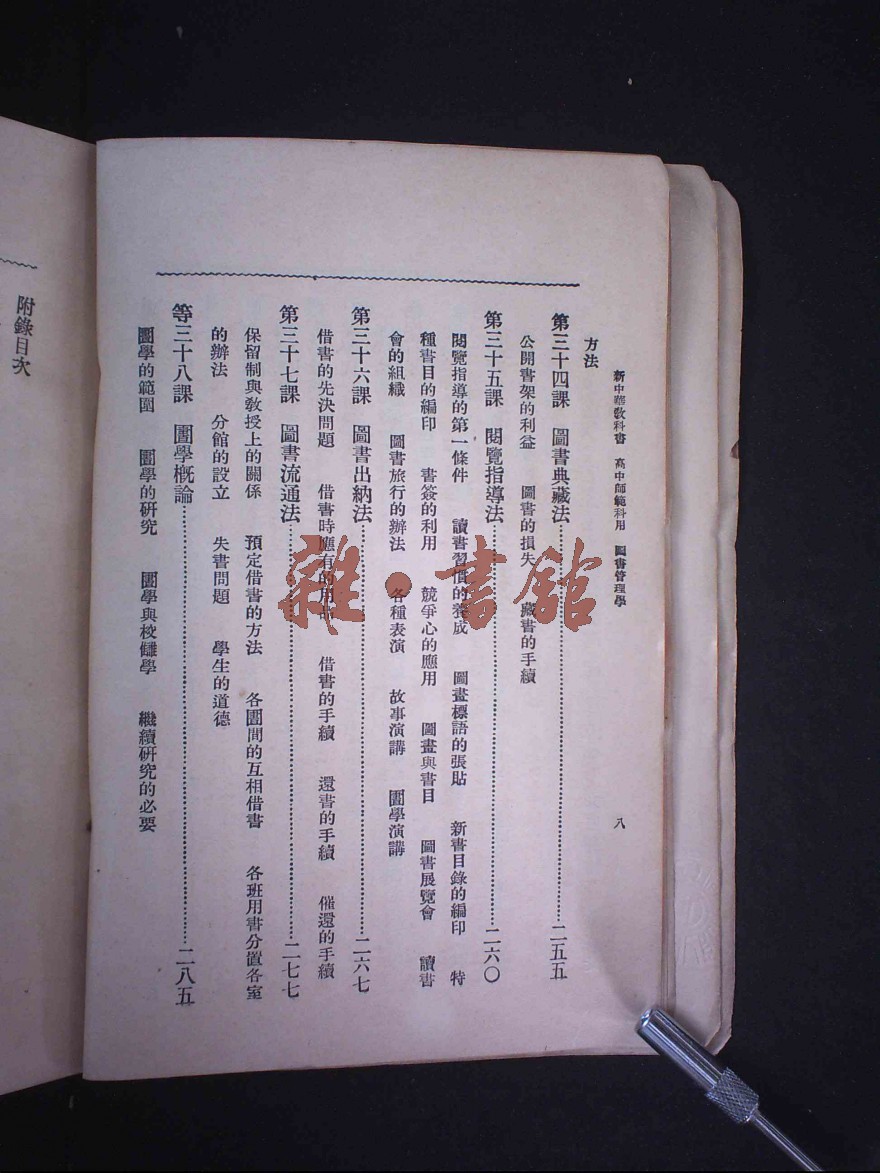 新中華敎科書　高中師範科用　圖書管理學
八
方法
第三十四課　圖書典藏法…………二五五
公開書架的利益　圖書的損失　藏書的手續
第三十五課　閱覽指導法…………二六〇
閱覽指導的第一條件　讀書習慣的養成　圖畫標語的張貼　新書目錄的編印　特
種書目的編印　書簽的利用　競爭心的應用　圖畫與書目　圖書展覽會　讀書
會的組織　圖書旅行的辦法　各種表演　故事演講　圕學演講
第三十六課　圖書出納法…………二六七
借書的先決問題　借書時應有的用品　借書的手續　還書的手續　催還的手續
第三十七課　圖書流通法…………二七七
保留制與敎授上的關係　預定借書的方法　各圕間的互相借書　各班用書分置各室
的辦法　分館的設立　失書問題　學生的道德
等三十八課　圕學槪論…………二八五
圕學的範圍　圕學的硏究　圕學與校讎學　繼續硏究的必要
附錄目次
雜·書館